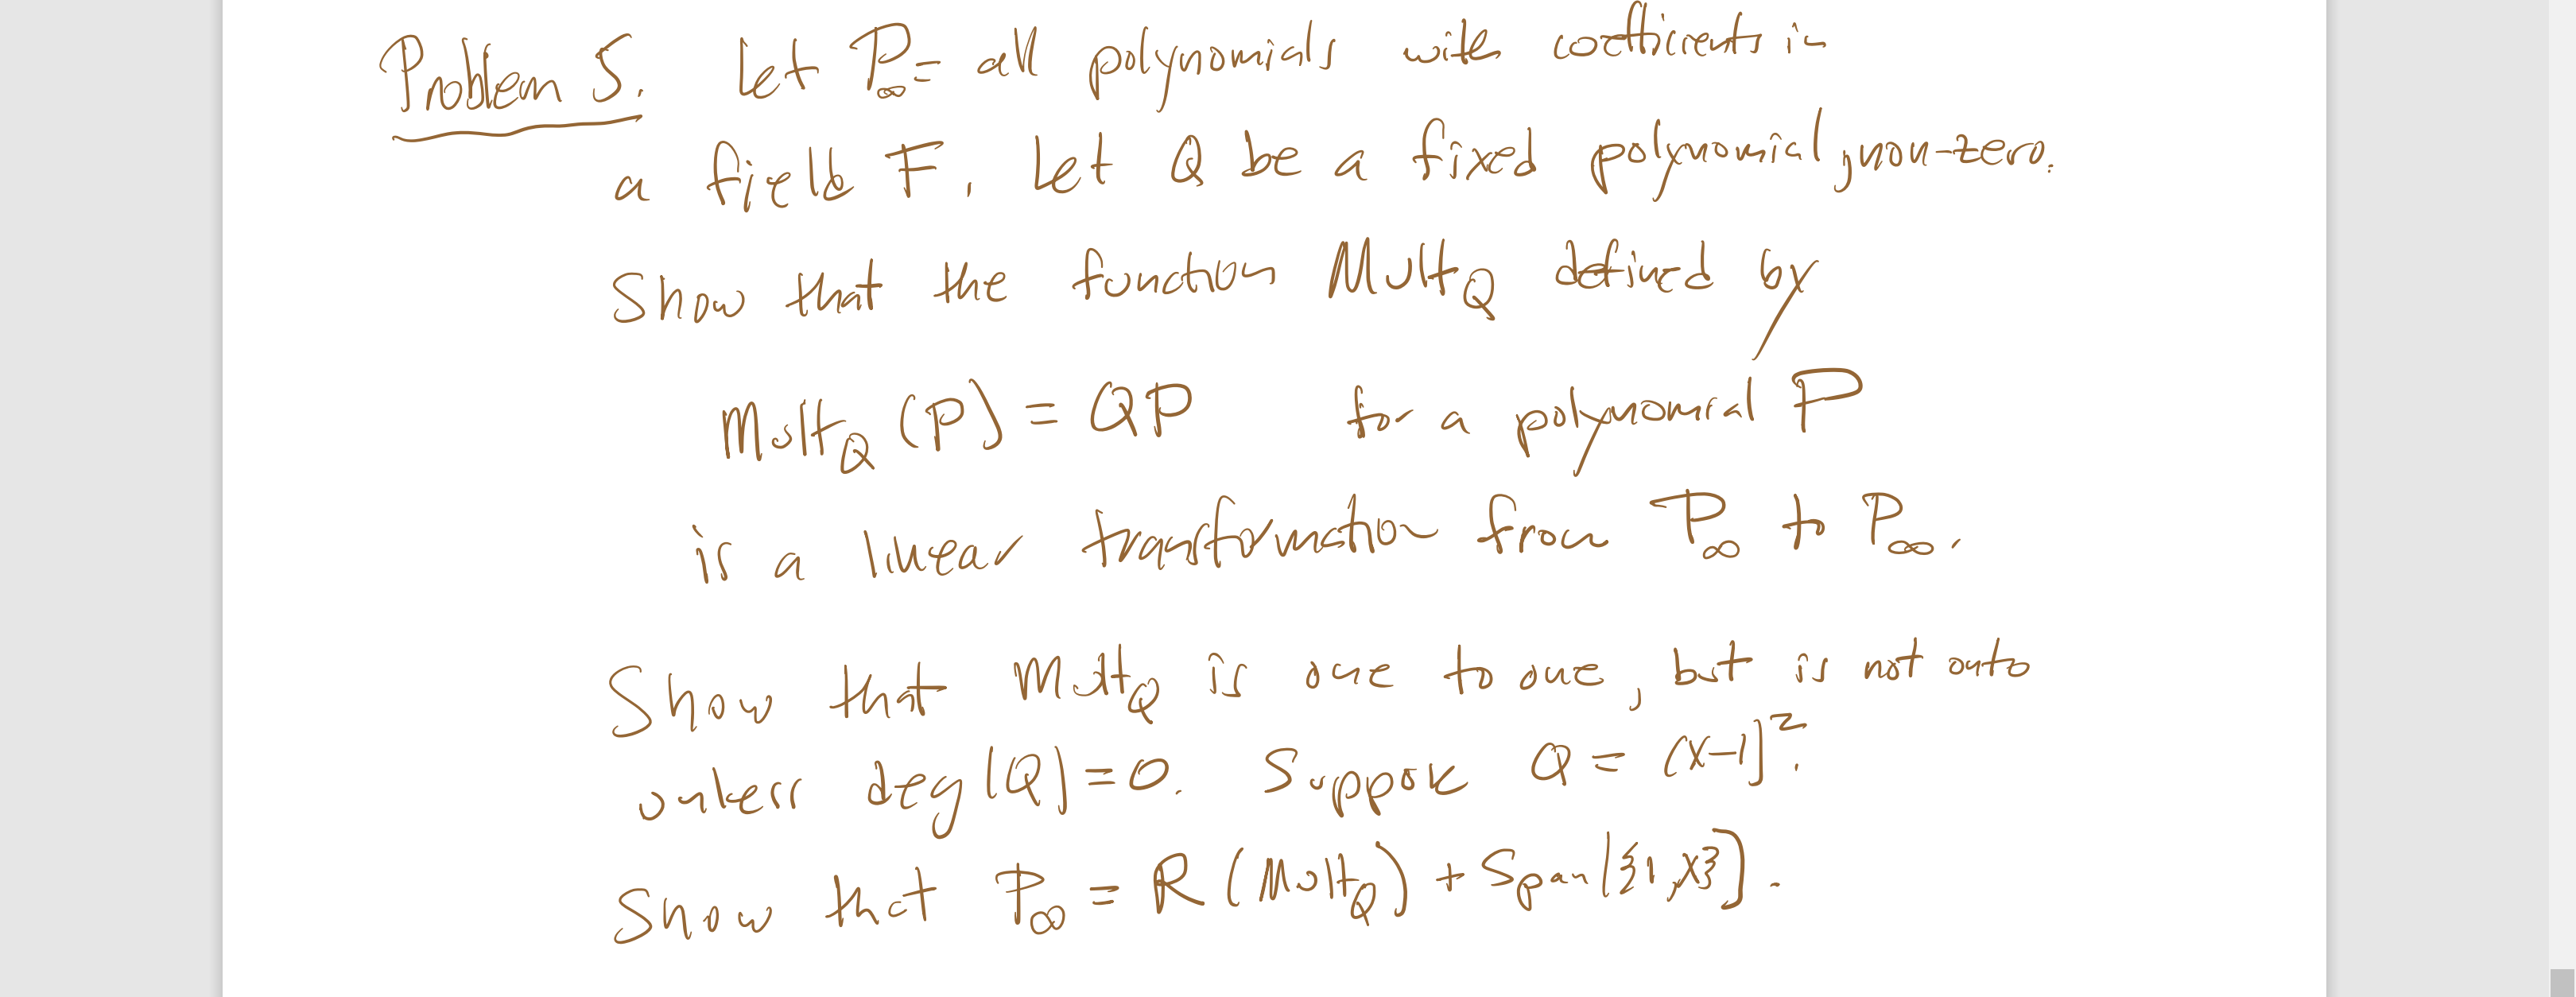 Problem 5. Let P∞ = all polynomials with coefficients in
a field F. Let Q be a fixed polynomial, non-zero.
Show that the function Mult_Q defined by
Mult_Q (P) = QP for a polynomial P
is a linear transformation from P∞ to P∞.
Show that Mult_Q is one to one, but is not onto
unless deg(Q) = 0. Suppose Q = (x-1)².
Show that P∞ = R(Mult_Q) + Span({1,x}).